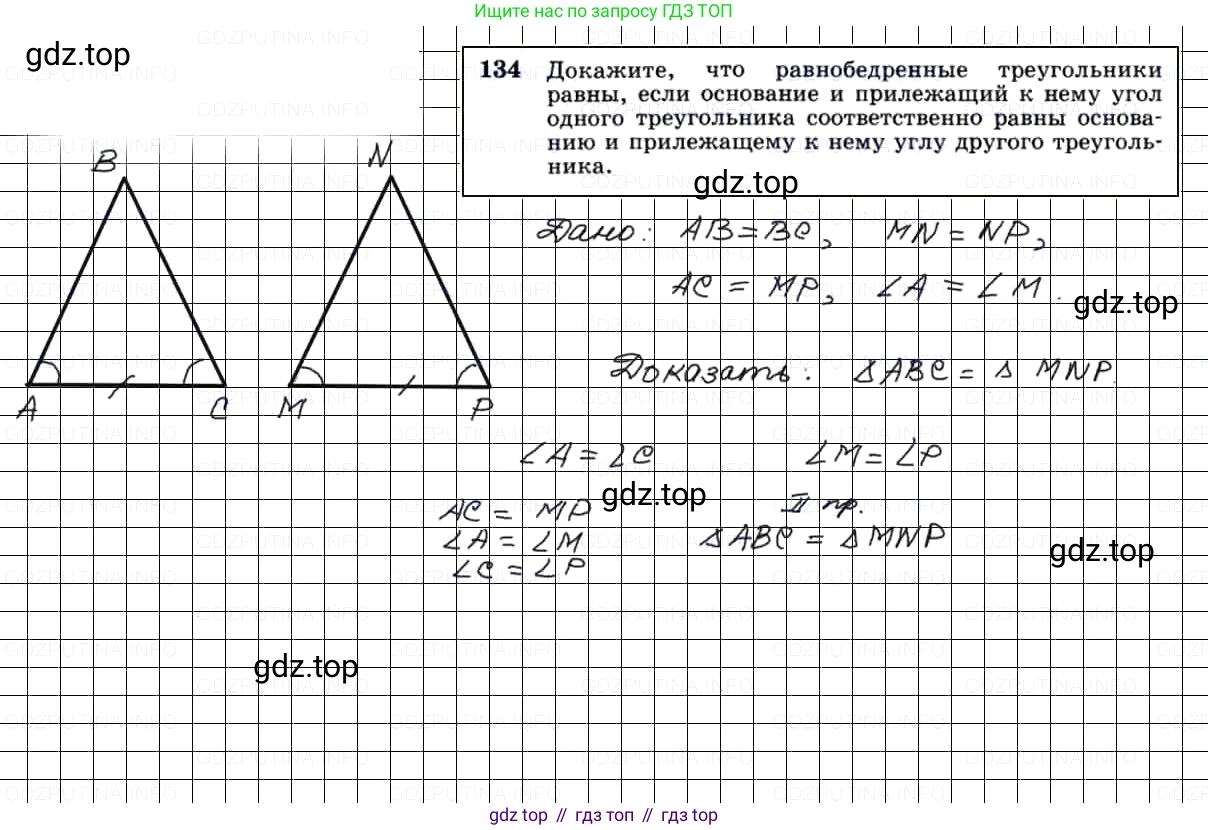 Ищите нас по запросу ГДЗ ТОП
gdz.top
134 Докажите, что равнобедренные треугольники
равны, если основание и прилежащий к нему угол
одного треугольника соответственно равны основа-
нию и прилежащему к нему углу другого треуголь-
ника.
gdz.top
B
N
A
C
M
P
Дано: AB = BC, MN = NP,
AC = MP, ∠A = ∠M.
gdz.top
Доказать: ΔABC = Δ MNP.
∠A = ∠C ∠M = ∠P
gdz.top
AC = MP II пр.
∠A = ∠M ΔABC = ΔMNP
∠C = ∠P
gdz.top
gdz.top
gdz top // гдз топ // gdz top
GDZPUTINA.INFO